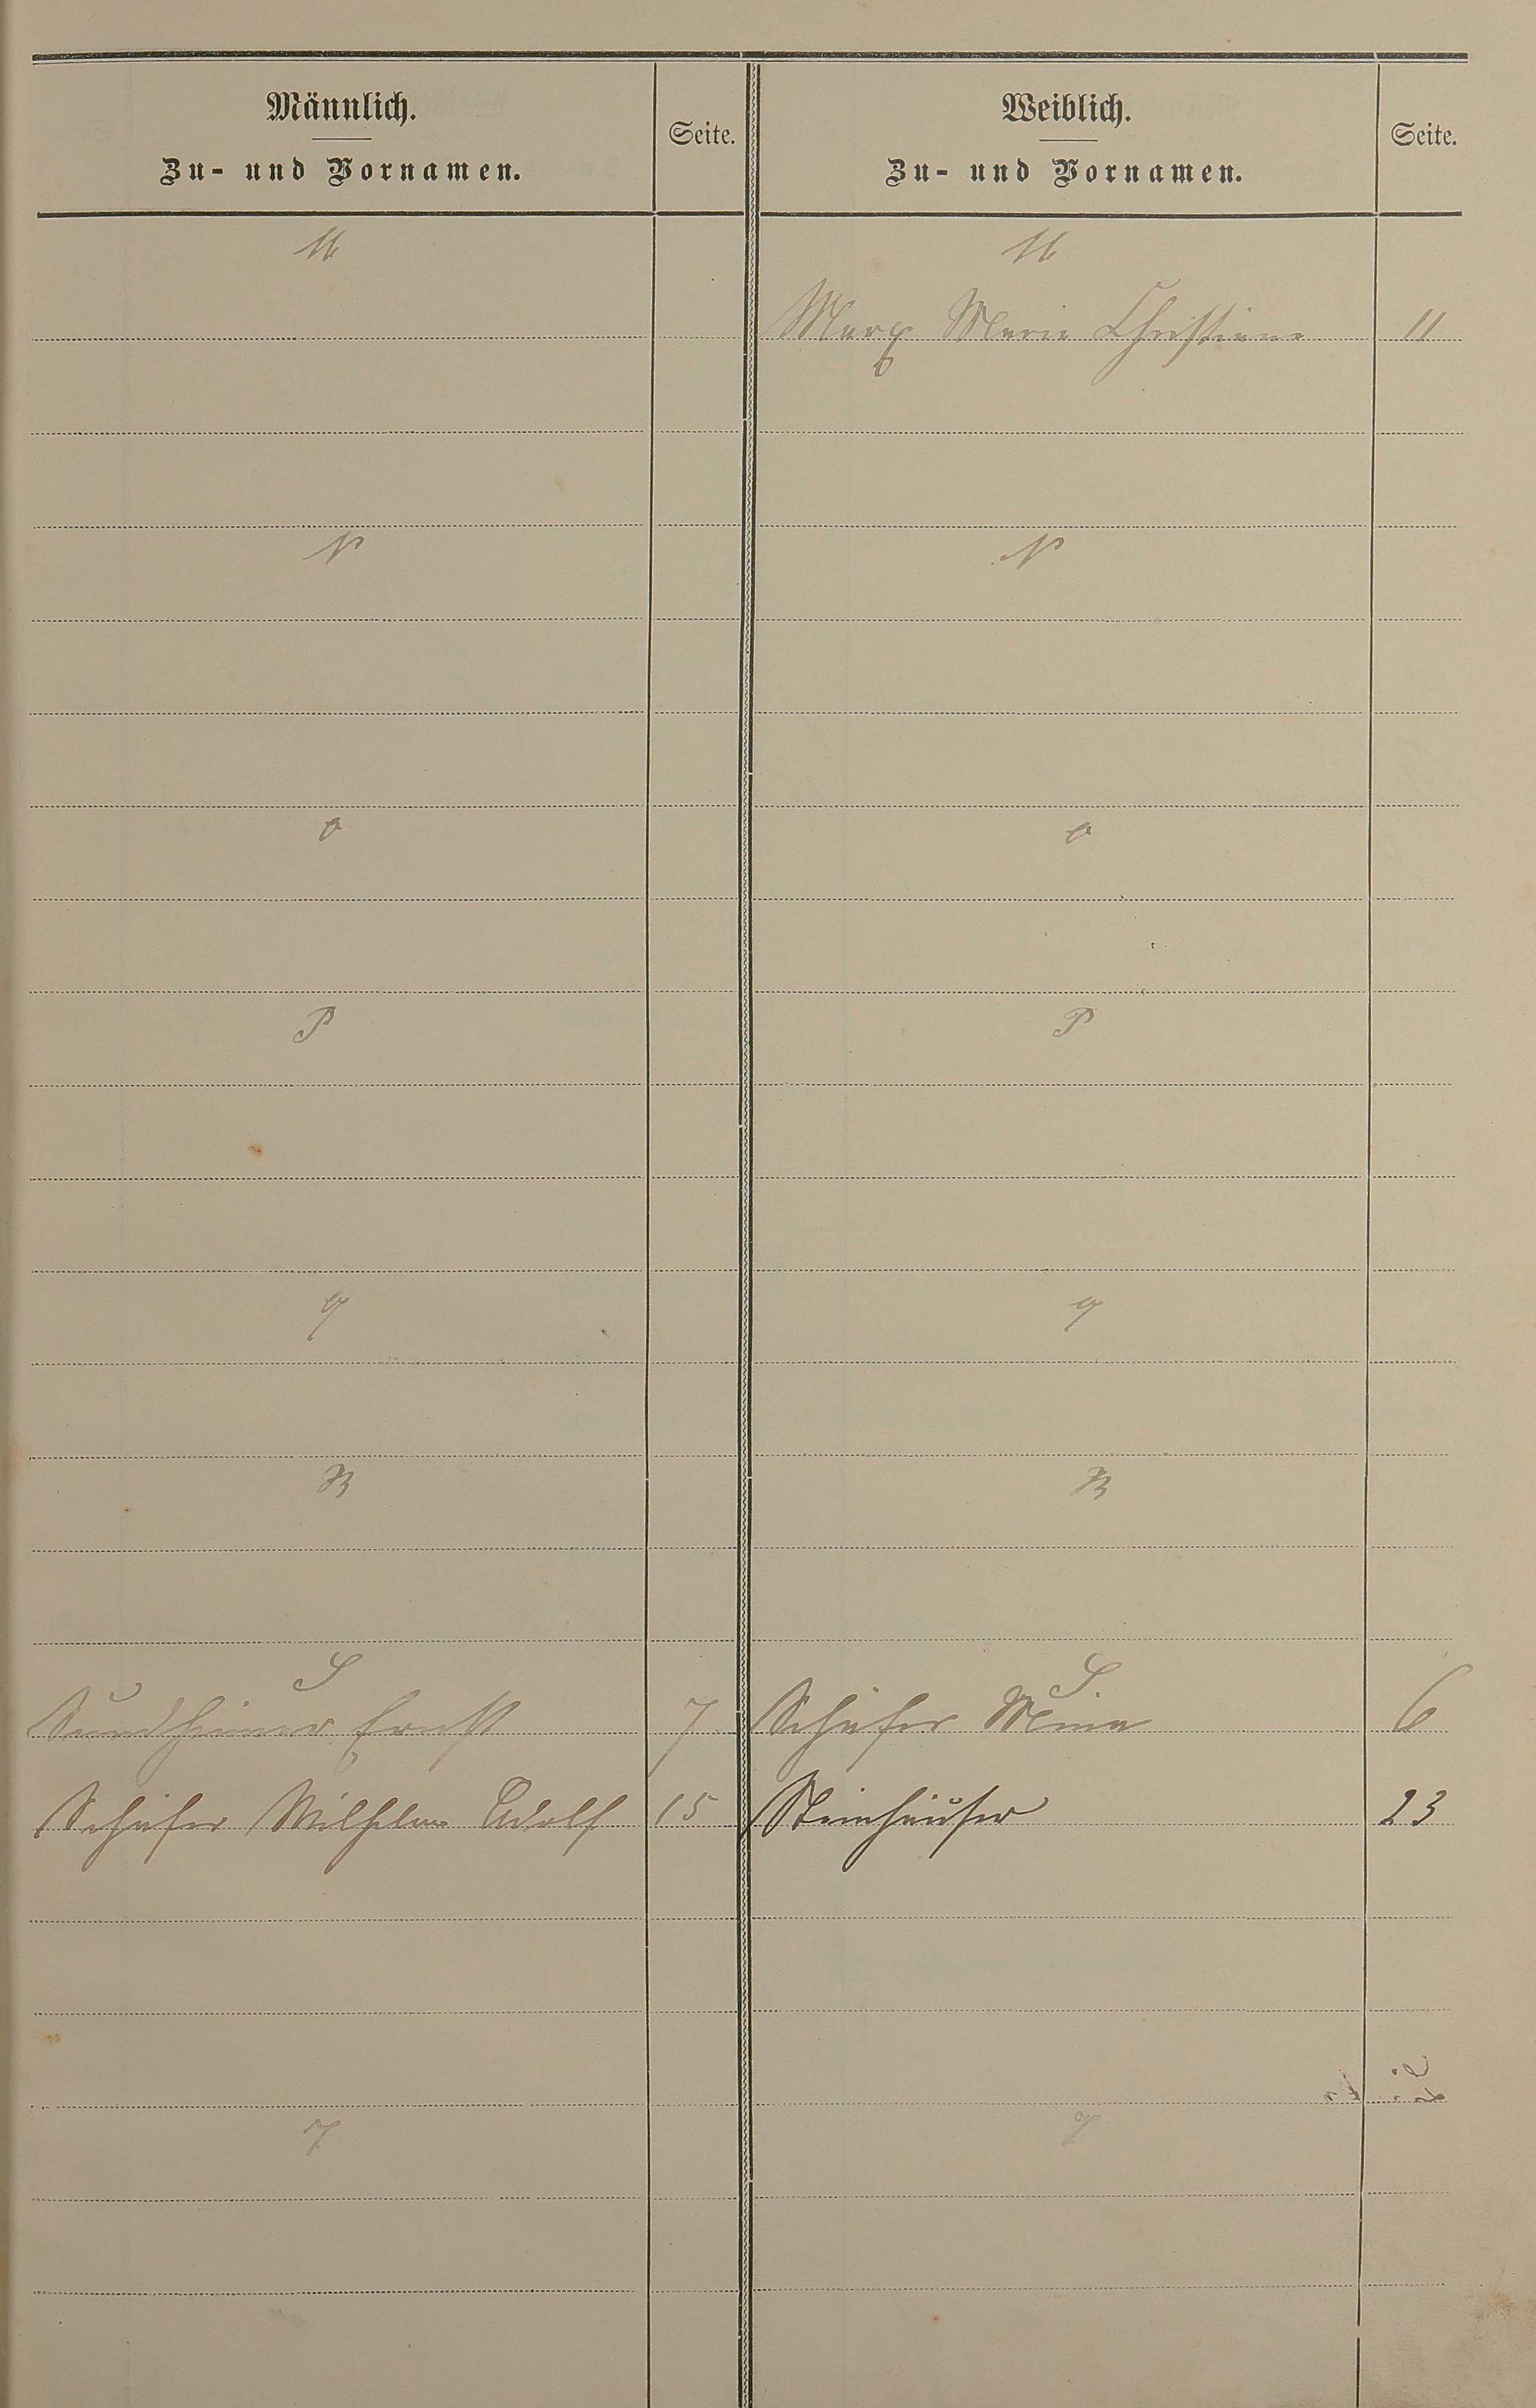 Männlich.
Zu- und Vornamen.
Seite.
Weiblich.
Zu- und Vornamen.
Seite.
M
M
Marx Marie Christiane 11
N
N
O
O
P
P
Q
Q
R
R
S
S
Sundheimer Ernst 7
Schäfer Mina 6
Schäfer Wilhelm Adolf 15
Steinhäuser 23
T
T